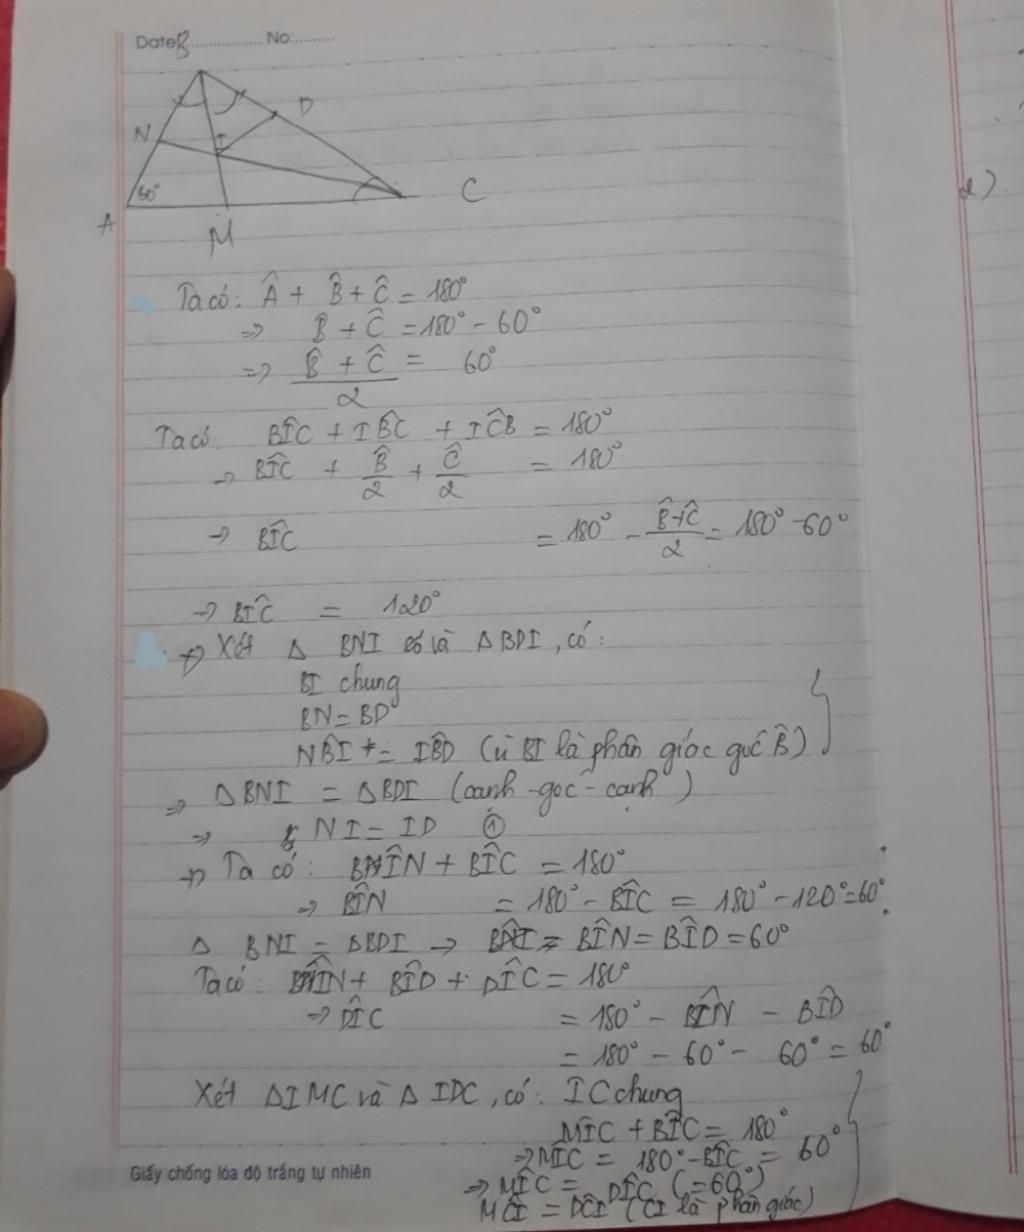 Date B No:
D
N
I
60°
C
A
M
2)
Ta có: Â + B̂ + Ĉ = 180°
=> B̂ + Ĉ = 180° - 60°
=> (B̂ + Ĉ)/2 = 60°
Ta có BÎC + IB̂C + IĈB = 180°
→ BÎC + B̂/2 + Ĉ/2 = 180°
→ BÎC = 180° - (B̂+Ĉ)/2 = 180° - 60°
→ BÎC = 120°
+) Xét Δ BNI và Δ BDI, có:
BI chung
BN = BD
NB̂I = IB̂D (vì BI là phân giác góc B̂)
=> Δ BNI = Δ BDI (cạnh - góc - cạnh)
=> NI = ID ①
+) Ta có: BÎN + BÎC = 180°
=> BÎN = 180° - BÎC = 180° - 120° = 60°
Δ BNI = Δ BDI → BÎN = BÎD = 60°
Ta có: BÎN + BÎD + DÎC = 180°
=> DÎC = 180° - BÎN - BÎD
= 180° - 60° - 60° = 60°
Xét Δ IMC và Δ IDC, có: IC chung
MÎC + BÎC = 180°
=> MÎC = 180° - BÎC = 60°
=> MÎC = DÎC (= 60°)
MĈI = DĈI (CI là phân giác)
Giấy chống lóa độ trắng tự nhiên